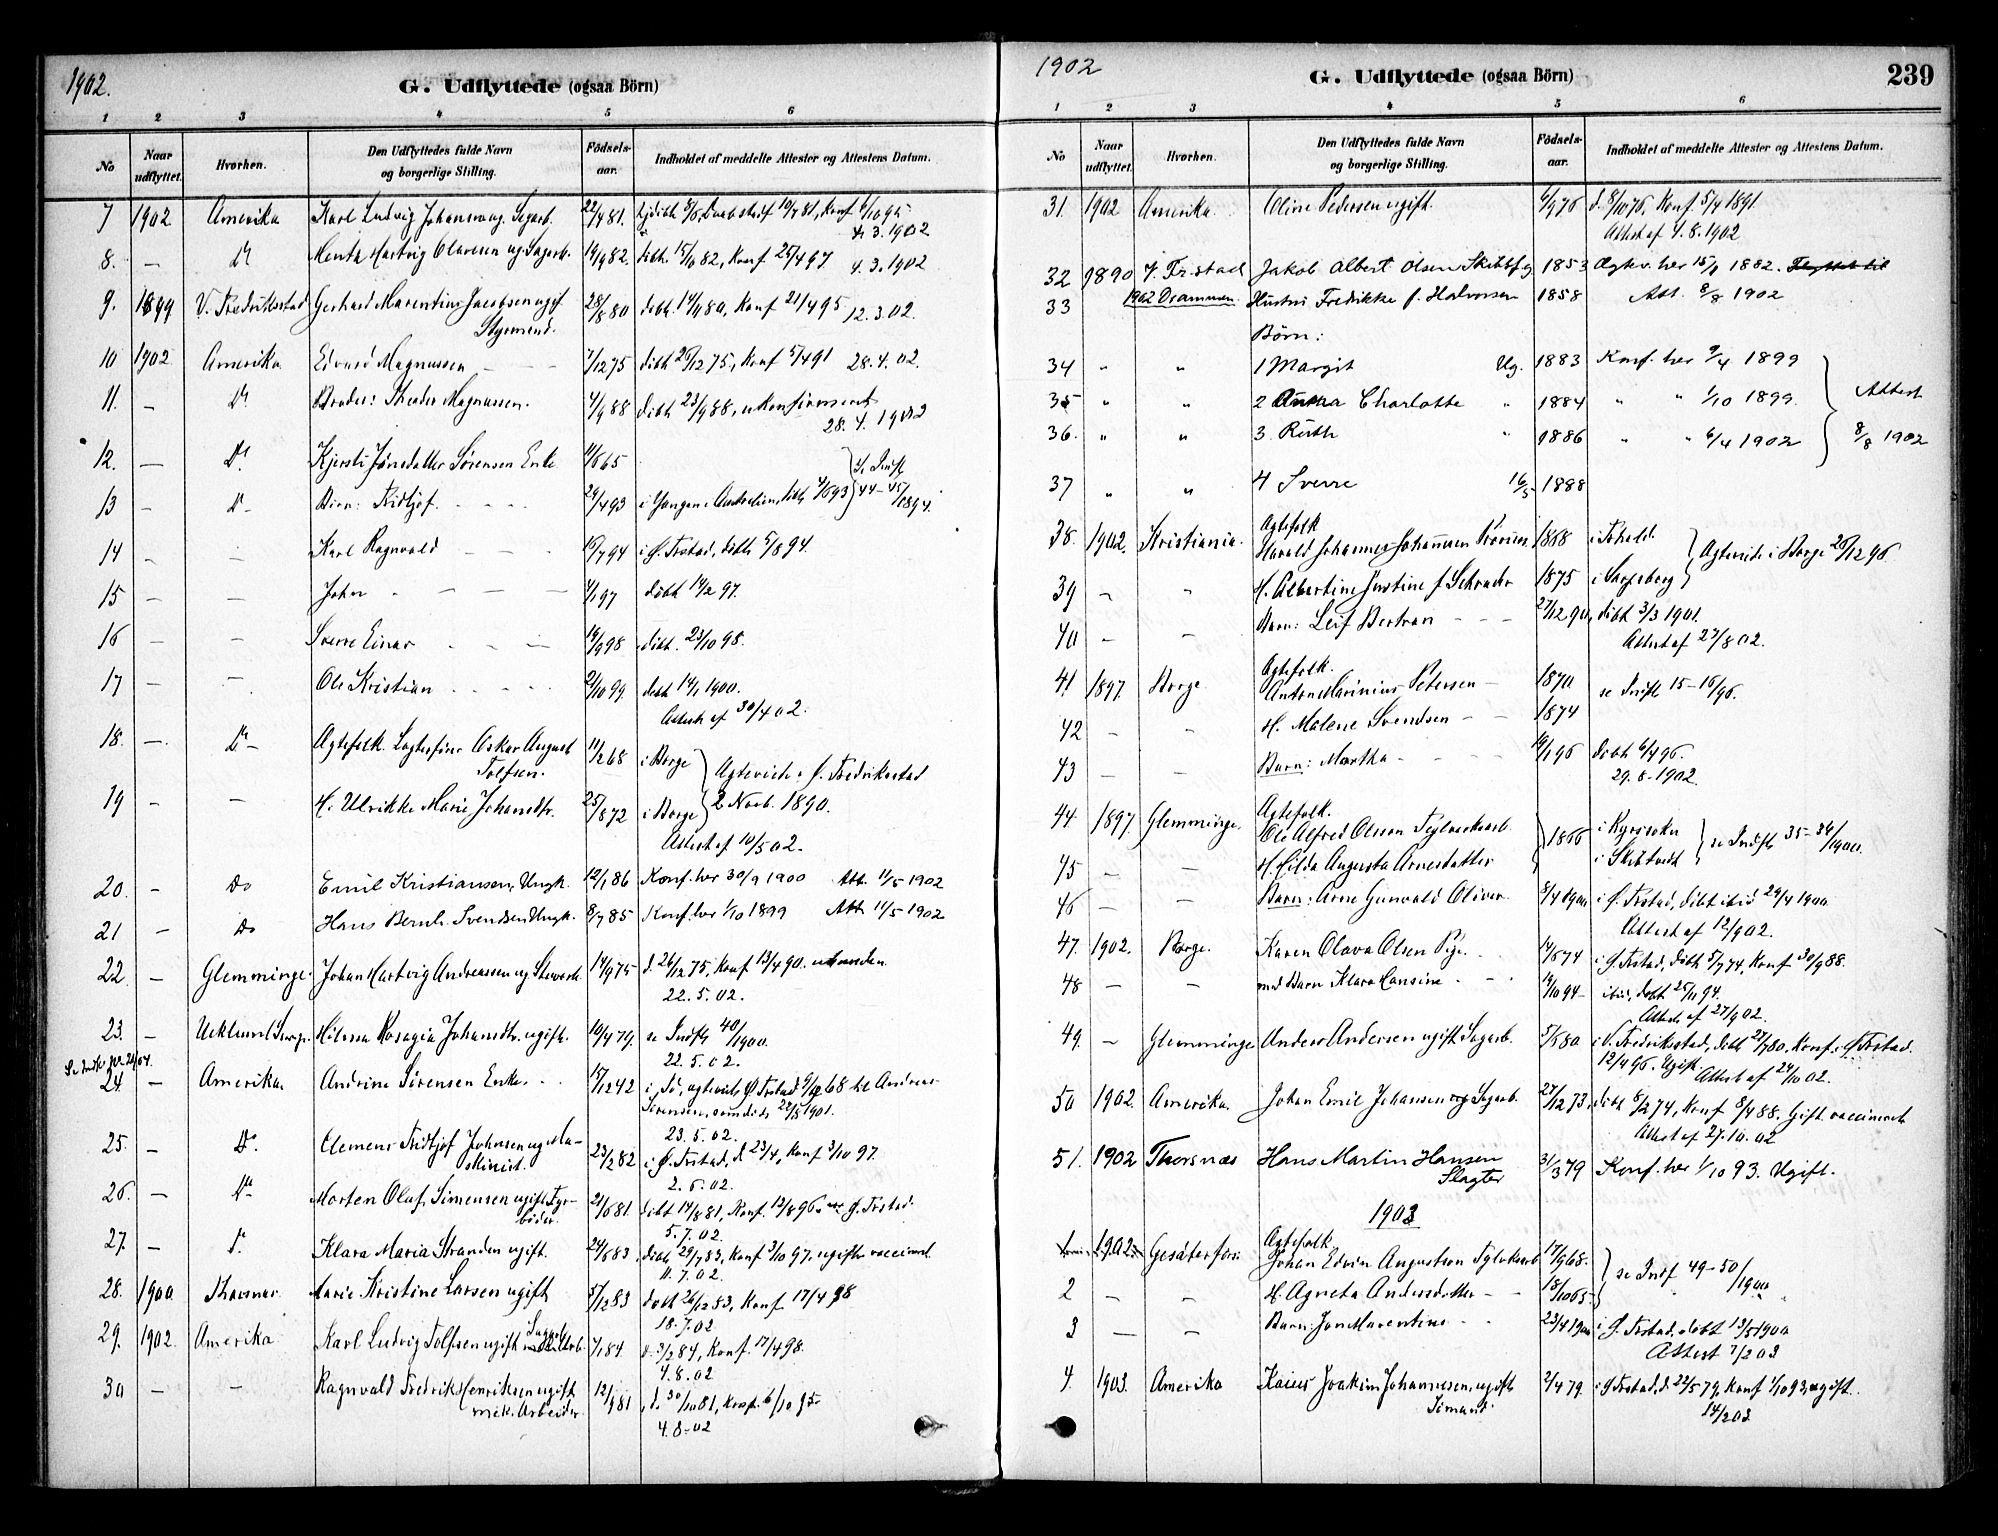 1902.
G. Udflyttede (ogsaa Börn)
1 2 3 4 5 6
No
Naar udflyttet.
Hvorhen.
Den Udflyttedes fulde Navn og borgerlige Stilling.
Födselsaar.
Indholdet af meddelte Attester og Attestens Datum.
7 1902 Amerika Karl Ludvig Johansen ug. Sagarb. 22/4 81.
4.3.1902
8. — Do Hartvig Olavesen ug. Sagarb. 19/9 82. döbt. 15/10 82, Konf. 25/4 97. 4.3.1902
9. 1899 V. Fredriksstad Gerhard Marentius Jacobsen ugif. 28/8 80 Konf 21/4 95 12.3.02.
Styrmand.
10 1902. Amerika Edvard Magnussen 7/12 75 döbt 26/12 75, Konf 5/4 91 28.4.02.
11. — Do Broder: Theodor Magnussen. 4/9 88 döbt 23/9 88, ukonfirmeret
28.4.1902
12. — Do Kjersti Jönsdatter Sörensen Enke 11/6 65
13 — Do Börn: Fridtjof 29/4 93 44-45/1894.
14 — — Karl Ragnvald 19/7 94 i Ø. Frstad, döbt 5/8 94.
15 — — John 4/1 97 döbt 14/2 97.
16 — — Sverre Einar 19/9 98 döbt. 23/10 98.
17 — — Ole Kristian 21/10 99. döbt 14/1 1900.
Attest af 30/4 02.
18. — Do Agtefolk. Oskar August Tolfsen. 11/2 68 i Borge
Agteviede i Ø. Fredriksstad
19 — — H. Ulrikke Marie Johansdtr. 25/8 72 i Borge 2 Novb. 1890.
Attest af 10/5 02.
20. — Do Emil Kristiansen, Ungk. 12/1 86 Konf. her 30/9 1900 Att. 11/5 1902
21 — Do Hans Bernh. Svendsen Ungk. 8/7 85 Konf. her 1/10 1899 Att. 11/5 1902
22 — Glemminge. Johan Hartvig Andreassen ug. 14/9 75 d. 26/12 75, Konf 13/4 90.
22.5.02.
23. — Johansdtr. ugift. 10/4 79. se Indfl 40/1900.
22.5.02.
24. — Amerika Andrine Sörensen Enke 15/12 42
23.5.02.
25. — Do Clemens Fridtjof Johnsen ug. Maskinist. 23/2 82 i Ø. Frstad, d 23/4, Konf 3/10 97.
2.6.02.
26. — Do Morten Olaf Simensen ugift Fyrböder. 21/6 81. döbt 14/8 81, Konf. 13/8 96 Ø. Frstad.
5.7.02.
27. — Do Klara Maria Stranden ugift. 24/6 83 döbt 29/7 83, Konf 3/10 97, ugift vaccineret.
11.7.02.
28. 1900 Marie Kristine Larsen ugift 5/12 83 döbt 26/12 83, Konf. 17/4 98
18.7.02
29. 1902. Amerika Karl Ludvig Tolfsen ugift 7/1 84. d. 3/2 84, Konf. 17/4 98.
4.8.02
30 — — Ragnvald Fredrik Henriksen ugift mek. Arbeider 12/9 81 d. 30/10 81, Konf. 6/10 95
4.8.02
1902
G. Udflyttede (ogsaa Börn)
239
1 2 3 4 5 6
No
Naar udflyttet.
Hvorhen.
Den Udflyttedes fulde Navn og borgerlige Stilling.
Födselsaar.
Indholdet af meddelte Attester og Attestens Datum.
31. 1902 Amerika. Oline Pedersen ugift. 6/9 76 d. 8/10 76, Konf. 5/4 1891
Attest af 4.8.1902
32 1890 V. Fr.stad Jakob Albert Olsen 1853 Agtv. her 15/1 1882.
33 1902 Drammen. Hustru Fredrikke f. Halvorsen 1858 Att. 8/8 1902
Börn:
34 " " 1 Margit Ug. 1883 Konf. her 9/4 1899
35 " " 2 Anna Charlotte " 1884 " " 1/10 1899. Attest
36. " " 3. Ruth " 1886 " " 6/4 1902 8/8 1902
37 " " 4 Sverre 16/5 1888
38. 1902. Kristiania. Agtefolk
Harald Johannes Johannsen 1868
Agteviede i Borge 26/12 96
39 — " H. Albertine Justine f. Schrader 1875 i Sarpsborg
40 — — Barn: Leif Bertran 27/12 90, döbt 3/3 1901.
Attest af 27/8 02.
41 1897. Borge. Agtefolk.
Anton Marinius Petersen 1870 se Indfl 15-16/96.
42 — — H. Malene Svendsen 1874
43 — — Barn: Martha 19/1 96 döbt 6/4 96.
29.8.1902.
44. 1897. Glemminge. Agtefolk.
Ole Alfred Olsson Teglverksarb. 1866 se Indfl 35-36/1900.
45 — — H. Hilda Augusta Arnesdatter
46 — — Barn: Arne Gunvald Oliver 8/4 1900 i Ø. Frstad, döbt ibid 29/4 1900.
Attest af 12/9 02.
47. 1902. Borge. Karen Olava Olsen Pige. 14/6 74 i Ø. Frstad, döbt 5/7 74, Konf 30/9 88.
48 — — med Barn Klara Hansine 14/10 94 ibid, döbt 25/11 94.
Attest af 27/9 02.
49. — Glemminge Anders Andersen ugift Sagarb. 5/6 80 i V. Fredriksstad, döbt 27/7 80, Konf. i Ø Frstad.
12/4 96. Ugift. Attest af 24/10 02.
50 1902. Amerika. Johan Emil Johansen ug Sagarb. 27/12 73, döbt 8/2 74, Konf 8/4 88, Gift. vaccineret
Attest af 27.10.02
51. 1902 Thorsnæs Hans Martin Hansen Slagter 31/3 79 Konf. her 1/10 93. Ugift.
1903
1 1902 Agtefolk
Johan Edvin Augustson 17/9 68. se Indf 49-50/1900
2 — — H. Agneta Andersdotter 18/10 65
3 — — Barn: Jon Marentius 23/4 1900 i Ø. Frstad, döbt 13/5 1900
Attest 7/2 03
4. 1903. Amerika Kaius Joakim Johannesen, ugift Sömand. 2/4 79. i Ø Frstad, d. 22/5 79, Konf 1/10 93, ugift.
14/2 03